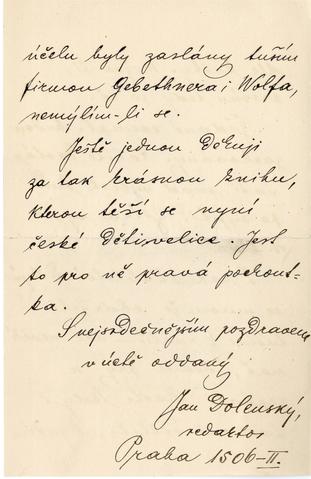 účelu byly zaslány tuším
firmou Gebethnera i Wolfa,
nemýlím-li se.
Ještě jednou děkuji
za tak krásnou knihu,
kterou těší se nyní
české děti velice. Jest
to pro ně pravá pochout-
ka.
S nejsrdečnějším pozdravem
v úctě oddaný
Jan Dolenský,
redaktor
Praha 1506-II.